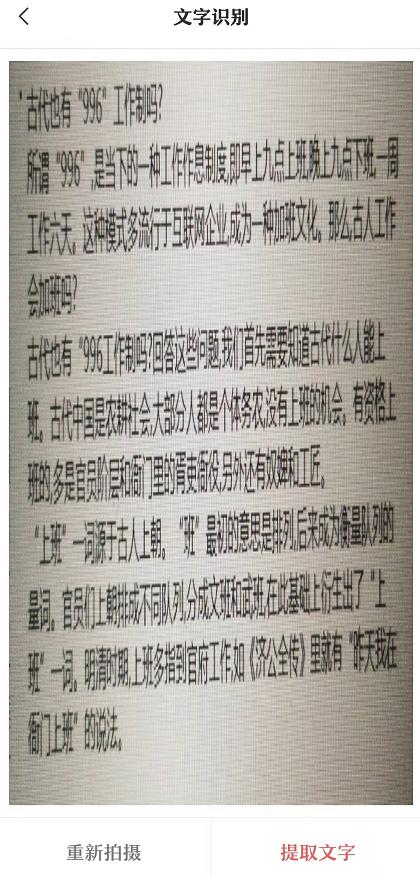 文字识别
古代也有“996”工作制吗?
所谓“996”,是当下的一种工作作息制度,即早上九点上班,晚上九点下班,一周
工作六天。这种模式多流行于互联网企业,成为一种加班文化。那么,古人工作
会加班吗?
古代也有“996工作制吗?回答这些问题,我们首先需要知道古代什么人能上
班。古代中国是农耕社会,大部分人都是个体务农,没有上班的机会。有资格上
班的,多是官员阶层和衙门里的胥吏衙役,另外还有奴婢和工匠。
“上班”一词源于古人上朝。“班”最初的意思是排列,后来成为衡量队列的
量词。官员们上朝排成不同队列,分成文班和武班,在此基础上衍生出了“上
班”一词。明清时期,上班多指到官府工作,如《济公全传》里就有“昨天我在
衙门上班”的说法。
重新拍摄
提取文字